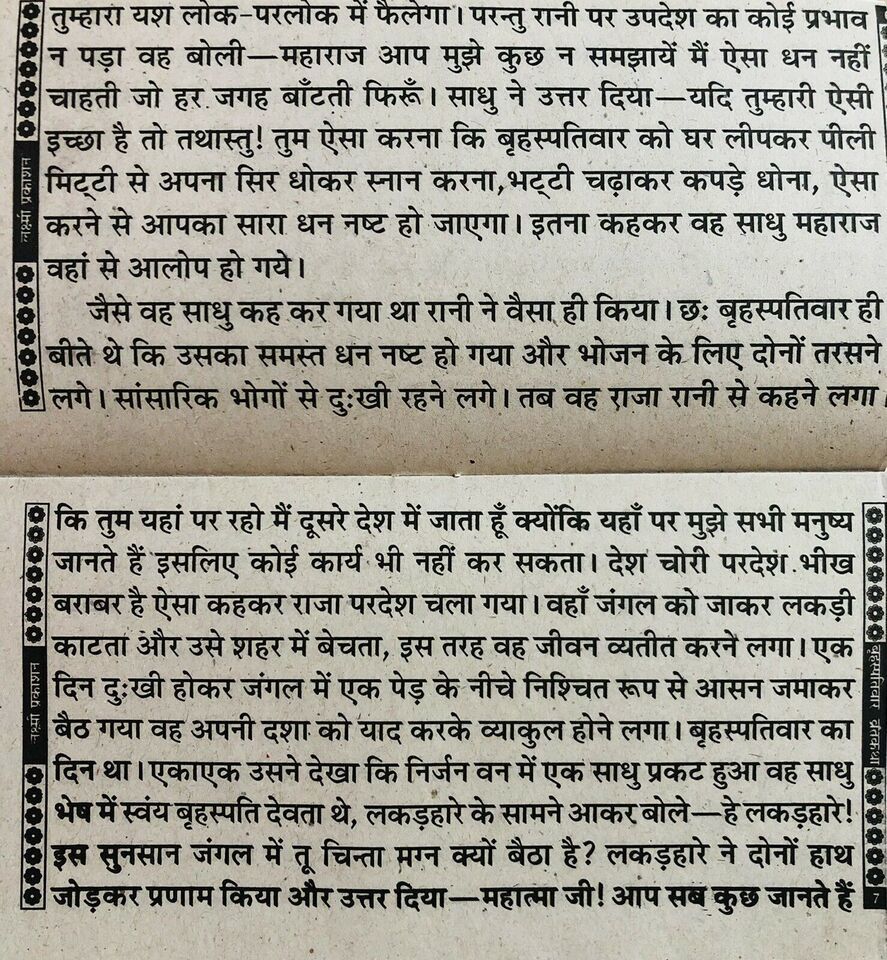 तुम्हारा यश लोक-परलोक में फैलेगा। परन्तु रानी पर उपदेश का कोई प्रभाव
न पड़ा वह बोली—महाराज आप मुझे कुछ न समझायें मैं ऐसा धन नहीं
चाहती जो हर जगह बाँटती फिरूँ। साधु ने उत्तर दिया—यदि तुम्हारी ऐसी
इच्छा है तो तथास्तु! तुम ऐसा करना कि बृहस्पतिवार को घर लीपकर पीली
मिट्टी से अपना सिर धोकर स्नान करना,भट्टी चढ़ाकर कपड़े धोना, ऐसा
करने से आपका सारा धन नष्ट हो जाएगा। इतना कहकर वह साधु महाराज
वहां से आलोप हो गये।
जैसे वह साधु कह कर गया था रानी ने वैसा ही किया। छः बृहस्पतिवार ही
बीते थे कि उसका समस्त धन नष्ट हो गया और भोजन के लिए दोनों तरसने
लगे। सांसारिक भोगों से दुःखी रहने लगे। तब वह राजा रानी से कहने लगा
लक्ष्मी प्रकाशन
कि तुम यहां पर रहो मैं दूसरे देश में जाता हूँ क्योंकि यहाँ पर मुझे सभी मनुष्य
जानते हैं इसलिए कोई कार्य भी नहीं कर सकता। देश चोरी परदेश भीख
बराबर है ऐसा कहकर राजा परदेश चला गया। वहाँ जंगल को जाकर लकड़ी
काटता और उसे शहर में बेचता, इस तरह वह जीवन व्यतीत करने लगा। एक
दिन दुःखी होकर जंगल में एक पेड़ के नीचे निश्चित रूप से आसन जमाकर
बैठ गया वह अपनी दशा को याद करके व्याकुल होने लगा। बृहस्पतिवार का
दिन था। एकाएक उसने देखा कि निर्जन वन में एक साधु प्रकट हुआ वह साधु
भेष में स्वंय बृहस्पति देवता थे, लकड़हारे के सामने आकर बोले—हे लकड़हारे!
इस सुनसान जंगल में तू चिन्ता मग्न क्यों बैठा है? लकड़हारे ने दोनों हाथ
जोड़कर प्रणाम किया और उत्तर दिया—महात्मा जी! आप सब कुछ जानते हैं
लक्ष्मी प्रकाशन
बृहस्पतिवार व्रतकथा
7